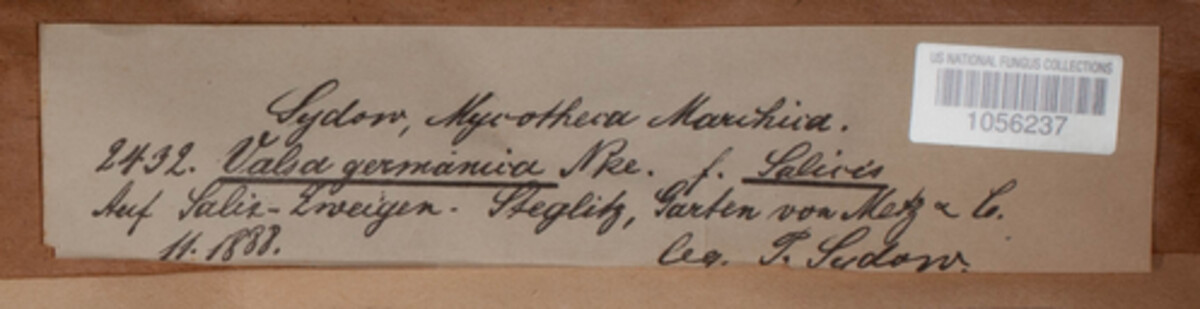 US NATIONAL FUNGUS COLLECTIONS
1056237
Sydow, Mycotheca Marchica.
2432. Valsa germanica Nke. f. Salicis
Auf Salix-Zweigen. Steglitz, Garten von Metz & C.
11. 1888.
leg. P. Sydow.